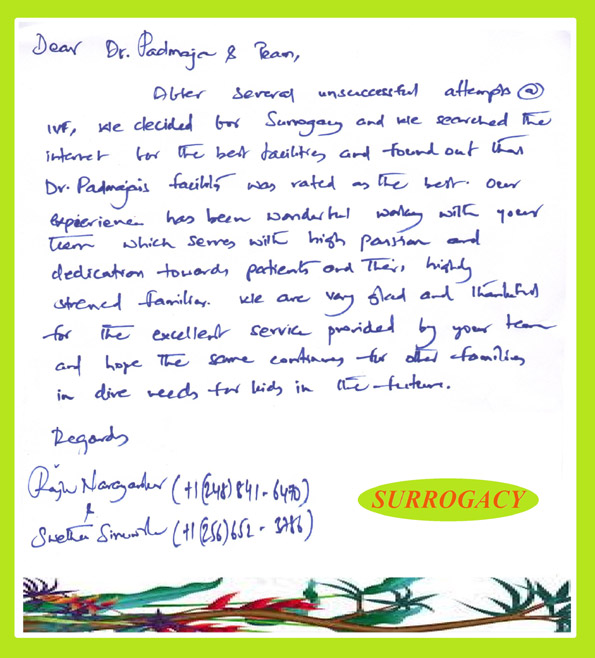 Dear Dr. Padmaja & Team,
After several unsuccessful attempts @
IVF, we decided for Surrogacy and we searched the
internet for the best facilities and found out that
Dr. Padmaja's facility was rated as the best. Our
experience has been wonderful working with your
team which serves with high passion and
dedication towards patients and their, highly
stressed families. We are very glad and thankful
for the excellent service provided by your team
and hope the same continues for other families
in dire needs for kids in the future.
Regards
(+1(248)841-6470)
&
(+1(256)652-3786)
SURROGACY